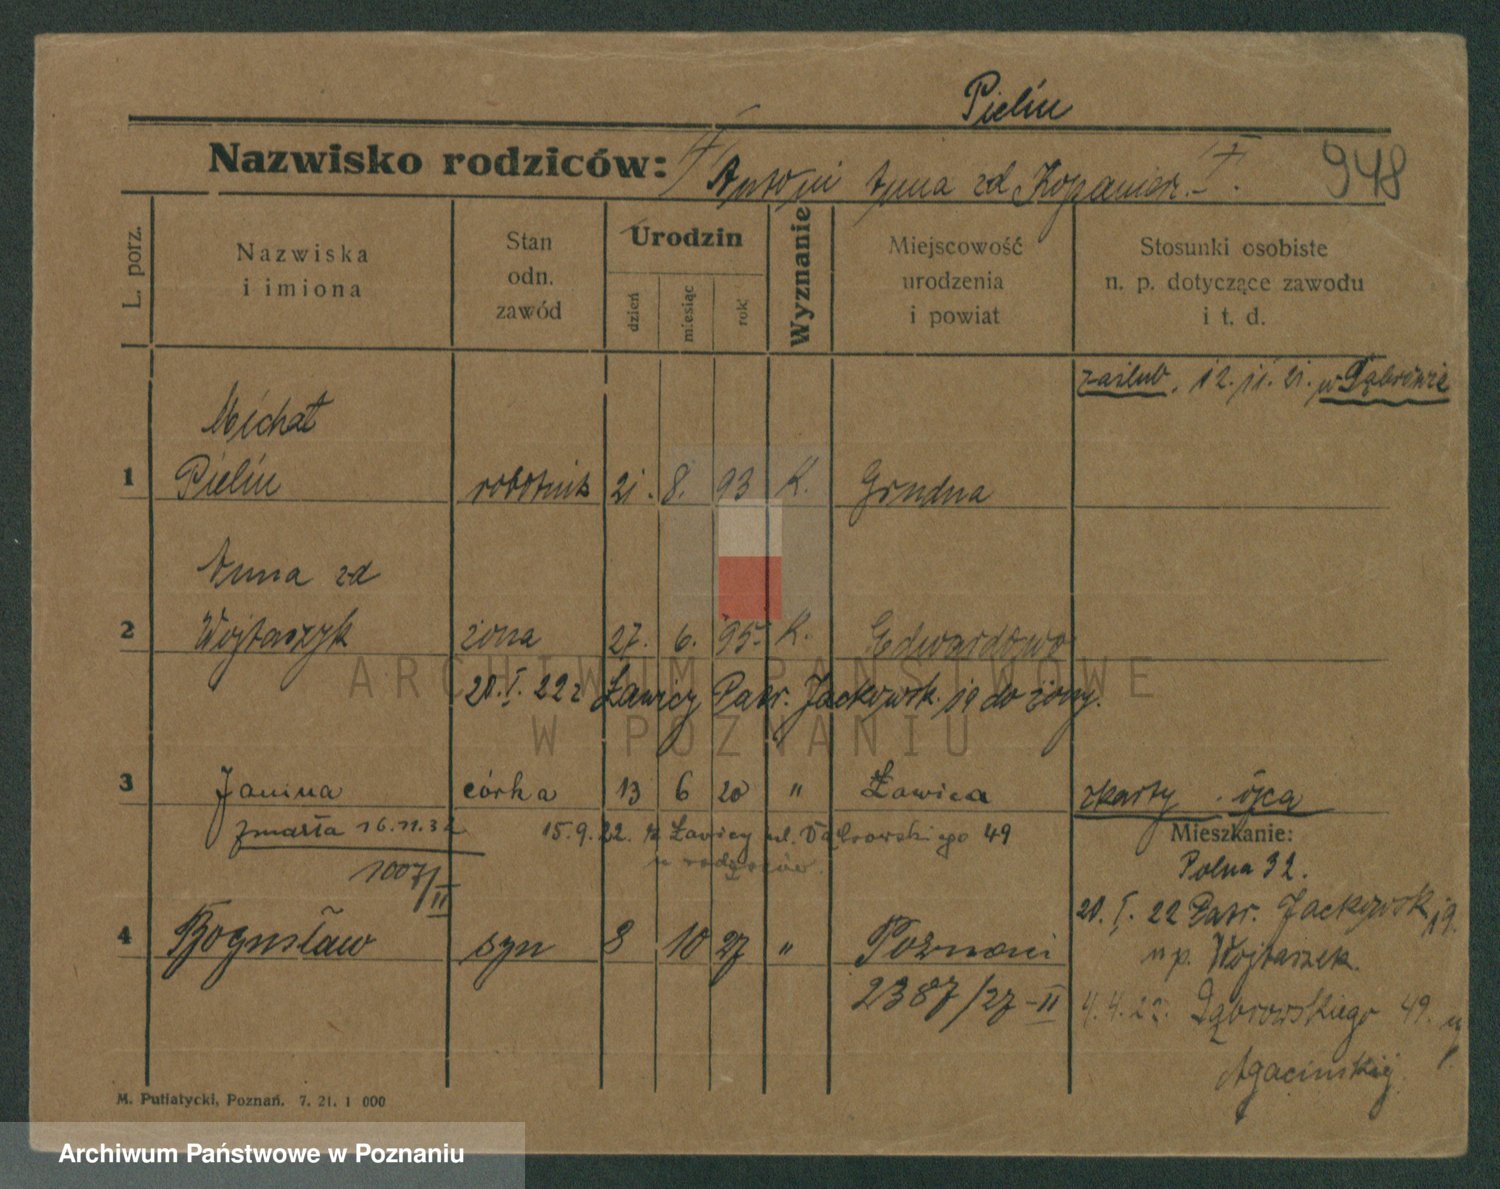 Pielin
Nazwisko rodziców: Antoni Anna zd Kopaniar.
948
L. porz.
Nazwiska
i imiona
Stan
odn.
zawód
Urodzin
dzień
miesiąc
rok
Wyznanie
Miejscowość
urodzenia
i powiat
Stosunki osobiste
n. p. dotyczące zawodu
i t. d.
zaślub. 12.11.21. w Dąbrówie
Michał
1 Pielin robotnik 21. 8. 93 K. Grudna
Anna zd
2 Wojtaszyk żona 27. 6. 95 K. Edwardowo
20.I.22 z Ławicy Patr. Jackowsk. 19 do żony.
3 Janina córka 13 6 20 " Ławica z karty ojca
zmarła 16.11.32 15.9.22. z Ławicy ul. Dąbrowskiego 49
u rodziców.
1007/II
Mieszkanie:
Polna 32.
20.I.22 Patr. Jackowsk 19.
4 Bogusław syn 8 10 27 " Poznań
np. Wojtaszek.
2387/27-II
4.4.22. Dąbrowskiego 49. u
Agacinskiej.
M. Putiatycki, Poznań. 7. 21. 1 000
ARCHIWUM PAŃSTWOWE
W POZNANIU
Archiwum Państwowe w Poznaniu